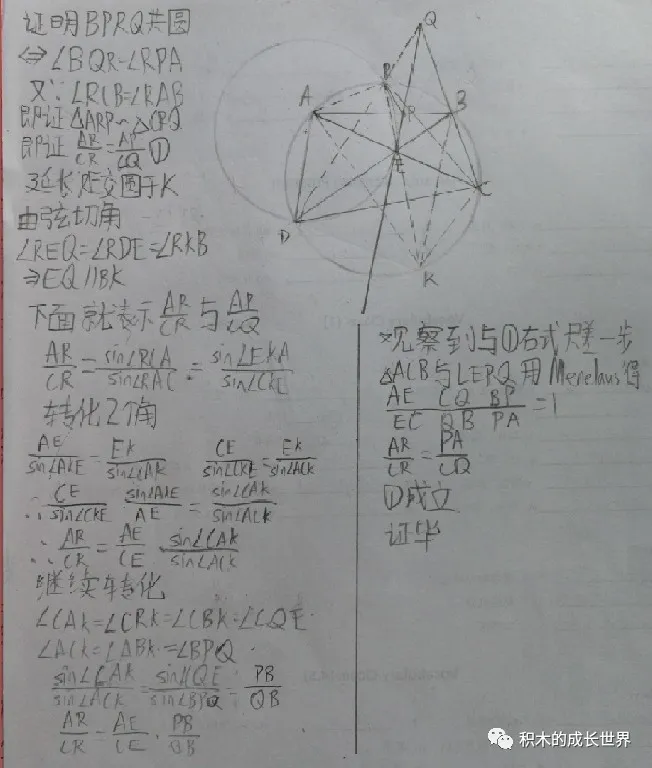 证明BPRQ共圆
⇔∠BQR=∠RPA
又∵∠RCB=∠RAB
即证△ARP∽△CRQ
即证 AR/CR=AP/CQ ①
延长RE交圆于K
由弦切角
∠REQ=∠RDE=∠RKB
⇒EQ∥BK
下面就表示 AR/CR 与 AP/CQ
AR/CR=sin∠RCA/sin∠RAC=sin∠EKA/sin∠CKE
转化2角
AE/sin∠AKE=EK/sin∠CAK CE/sin∠CKE=EK/sin∠ACK
∴ CE/sin∠CKE · sin∠AKE/AE=sin∠CAK/sin∠ACK
∴ AR/CR=AE/CE · sin∠CAK/sin∠ACK
继续转化
∠CAK=∠CRK=∠CBK=∠CQE
∠ACK=∠ABK=∠BPQ
sin∠CAK/sin∠ACK=sin∠CQE/sin∠BPQ=PB/QB
AR/CR=AE/CE · PB/QB
观察到与①右式只差一步
△ACB与LEPQ用Menelaus得
AE/EC CQ/QB BP/PA=1
AR/CR=PA/CQ
①成立
证毕
Q
R
A
P
B
E
C
D
K
积木的成长世界